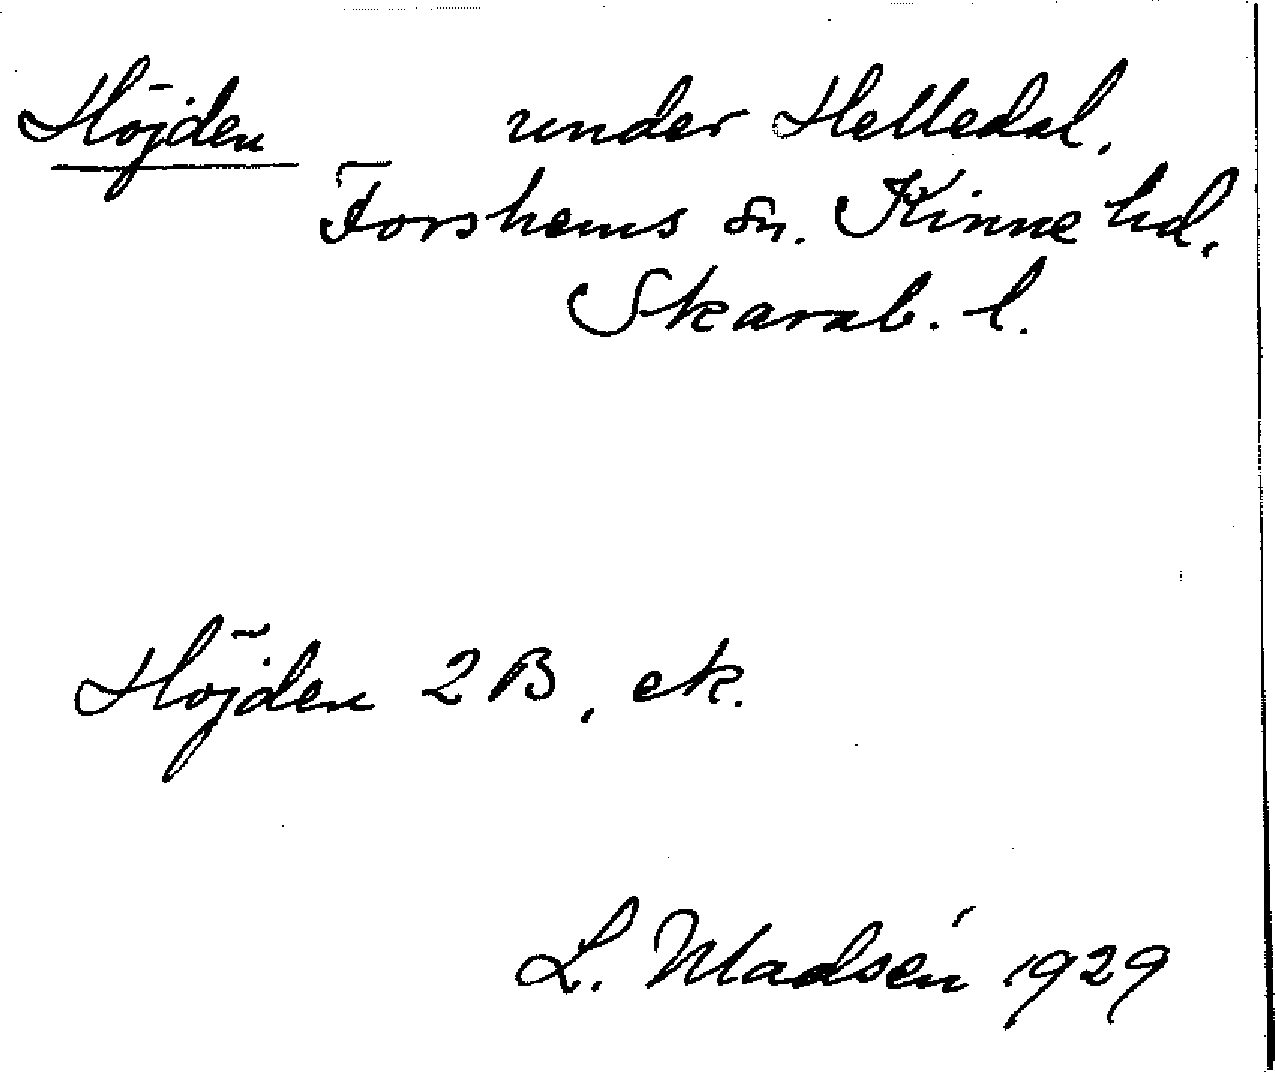 Höjden under Helledal,
Forshems sn. Kinne hd,
Skarab. l.
Höjden 2 B, ek.
L. Madsén 1929